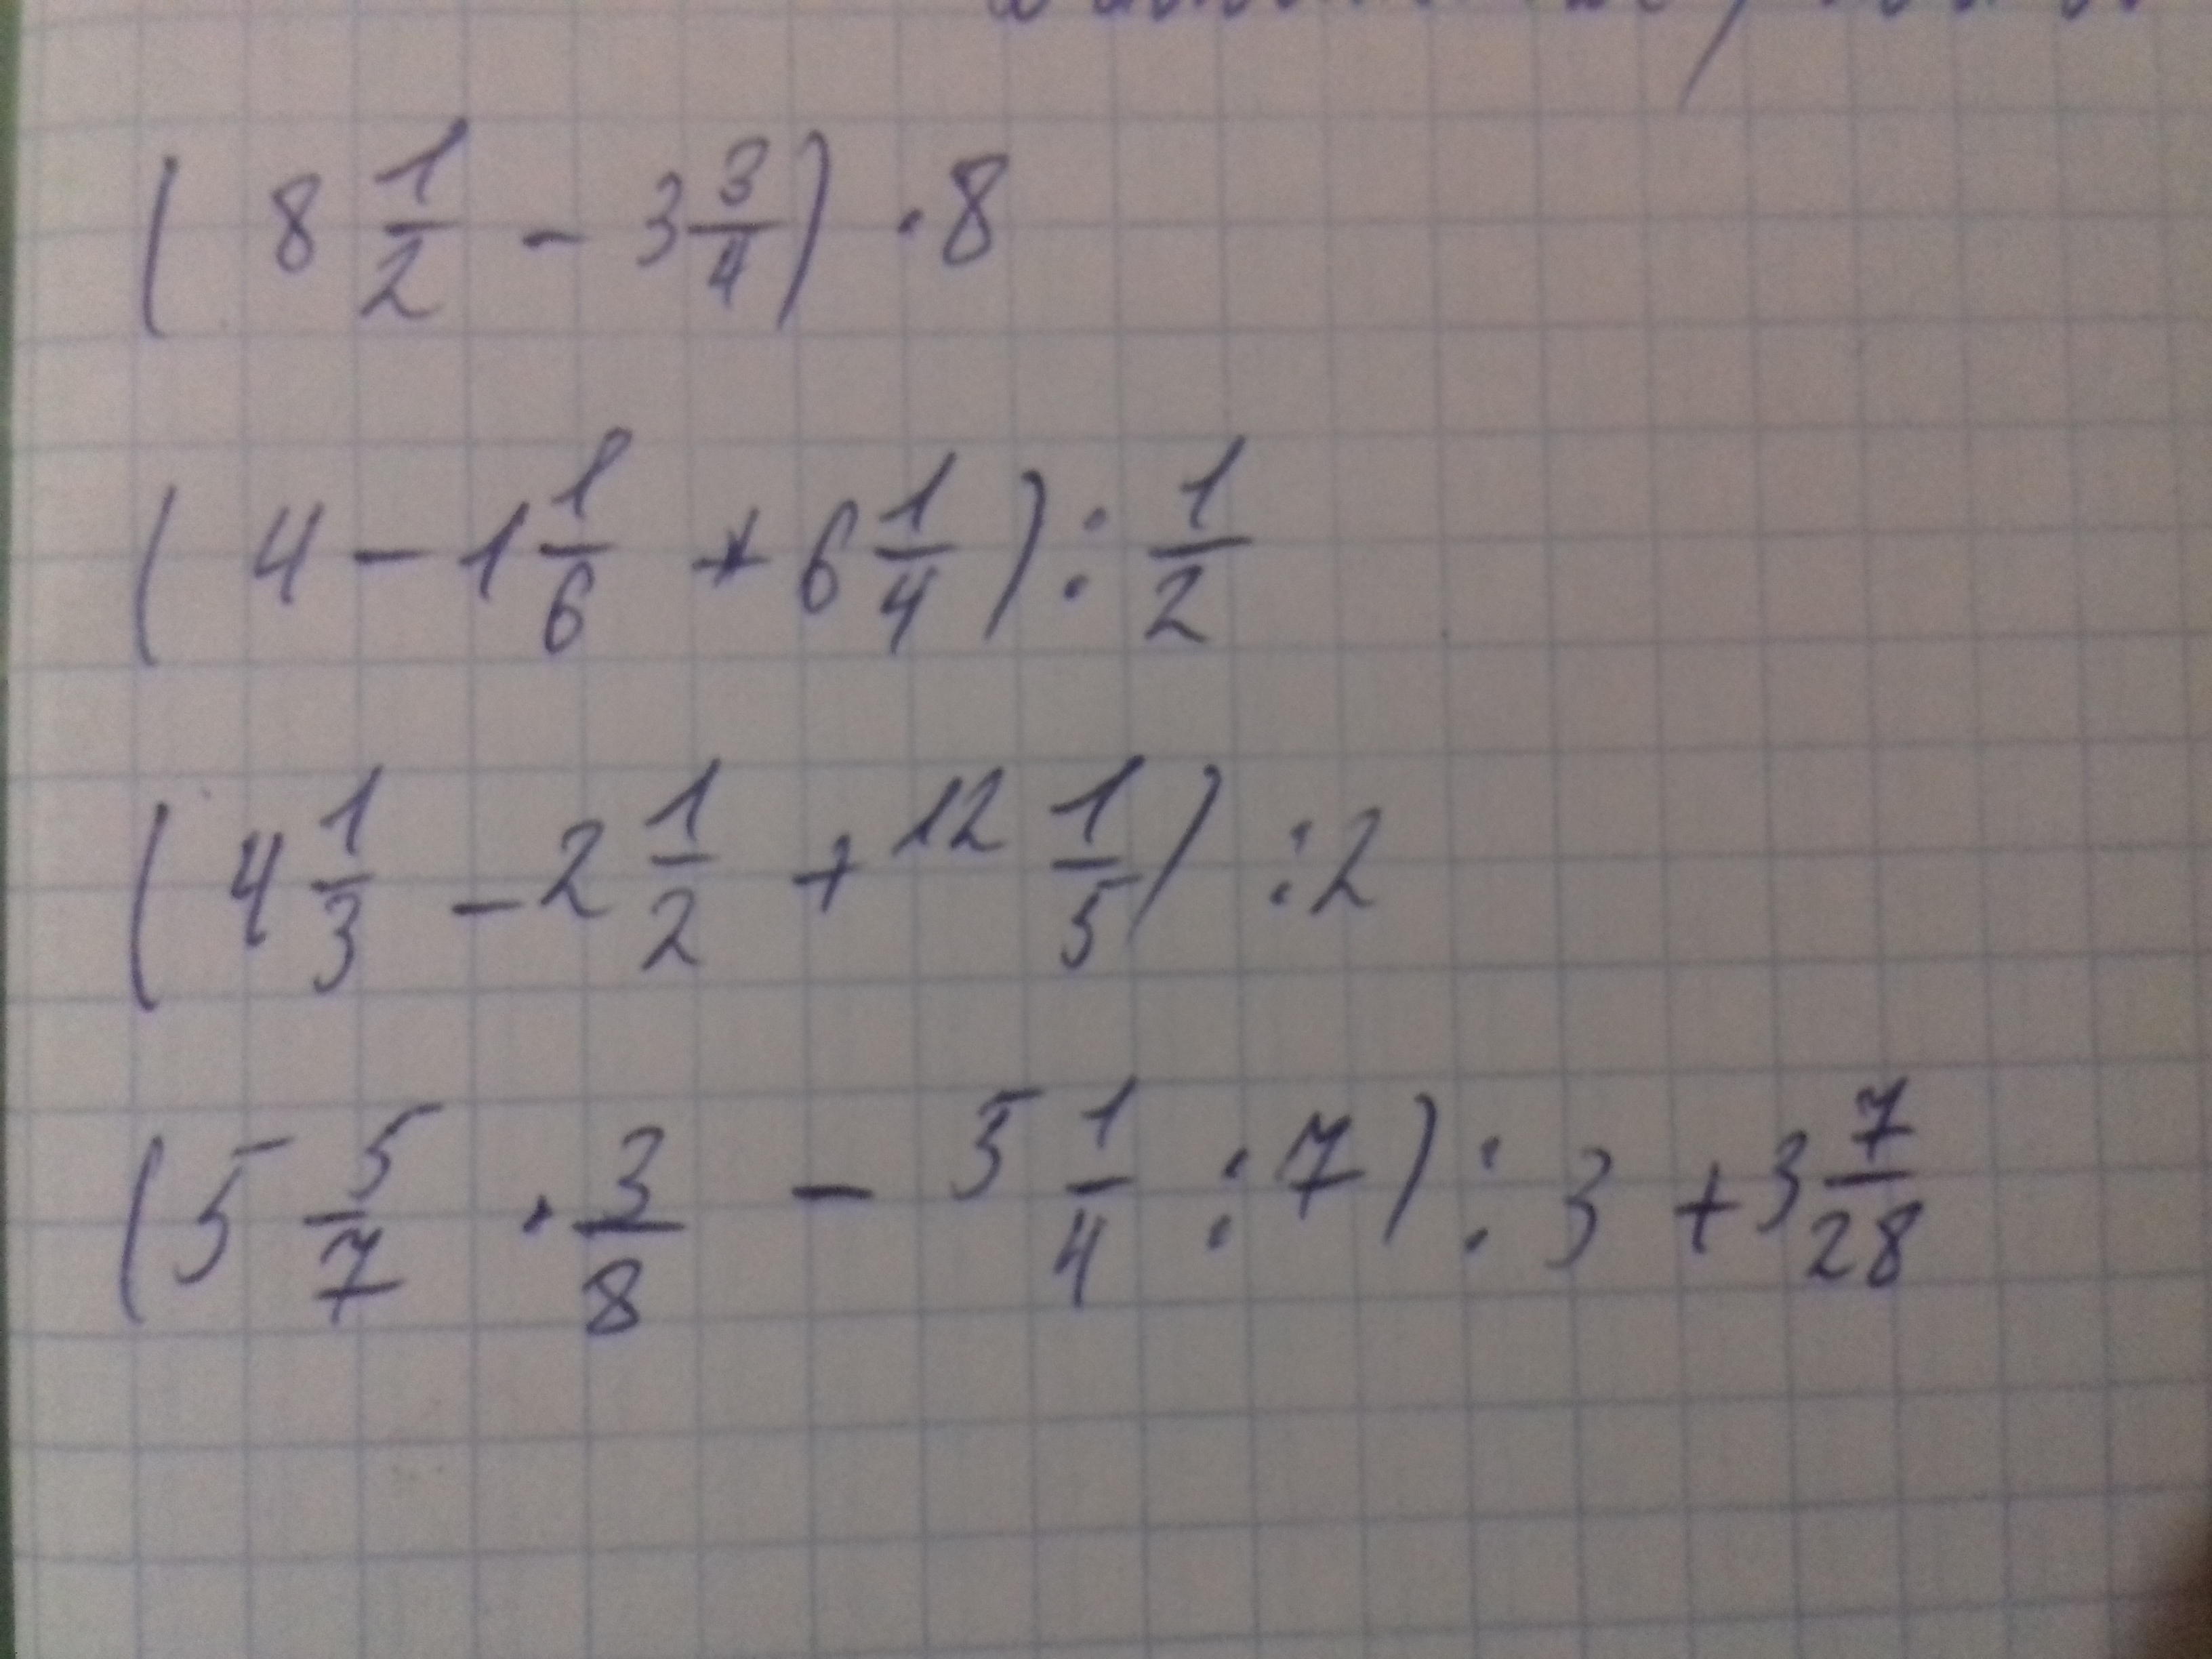 ( 8 1/2 - 3 3/4 ) · 8
( 4 - 1 1/6 + 6 1/4 ) : 1/2
( 4 1/3 - 2 1/2 + 12 1/5 ) : 2
( 5 5/7 · 3/8 - 5 1/4 : 7 ) : 3 + 3 7/28